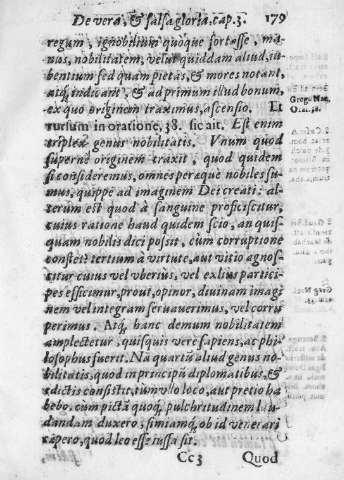 De vera, & falsa gloria, cap. 3. 179
regum, ignobilium quoque fortasse, ma-
nus, nobilitatem, velut quiddam aliud, iu-
bentium sed quam pietas, & mores notant,
atq; indicant, & ad primum illud bonum,
ex quo originem traximus, ascensio. Et
rursum in oratione, 38. sic ait. Est enim
triplex genus nobilitatis. Vnum quod
supernè originem traxit, quod quidem
si consideremus, omnes peræque nobiles su-
mus, quippe ad imaginem Dei creati: al-
terum est quod à sanguine proficiscitur,
cuius ratione haud quidem scio, an quis-
quam nobilis dici possit, cùm corruptione
constet: tertium à virtute, aut vitio agnos-
citur cuius vel vberius, vel exilius partici-
pes efficimur, prout, opinor, diuinam imagi
nem vel integram seruauerimus, vel corru
perimus. Atq; hanc demum nobilitatem
amplectetur, quisquis verè sapiens, ac phi-
losophus fuerit. Nā quartū aliud genus no-
bilitatis, quod in principū diplomatibus, &
edictis consistit, tùm vllo loco, aut pretio ha
bebo, cùm pictā quoq; pulchritudinem lau
dandam duxero, simiamq; ob id venerari
cœpero, quod leo esse iussa sit.
Cc3 Quod
Greg. Naz.
Or.